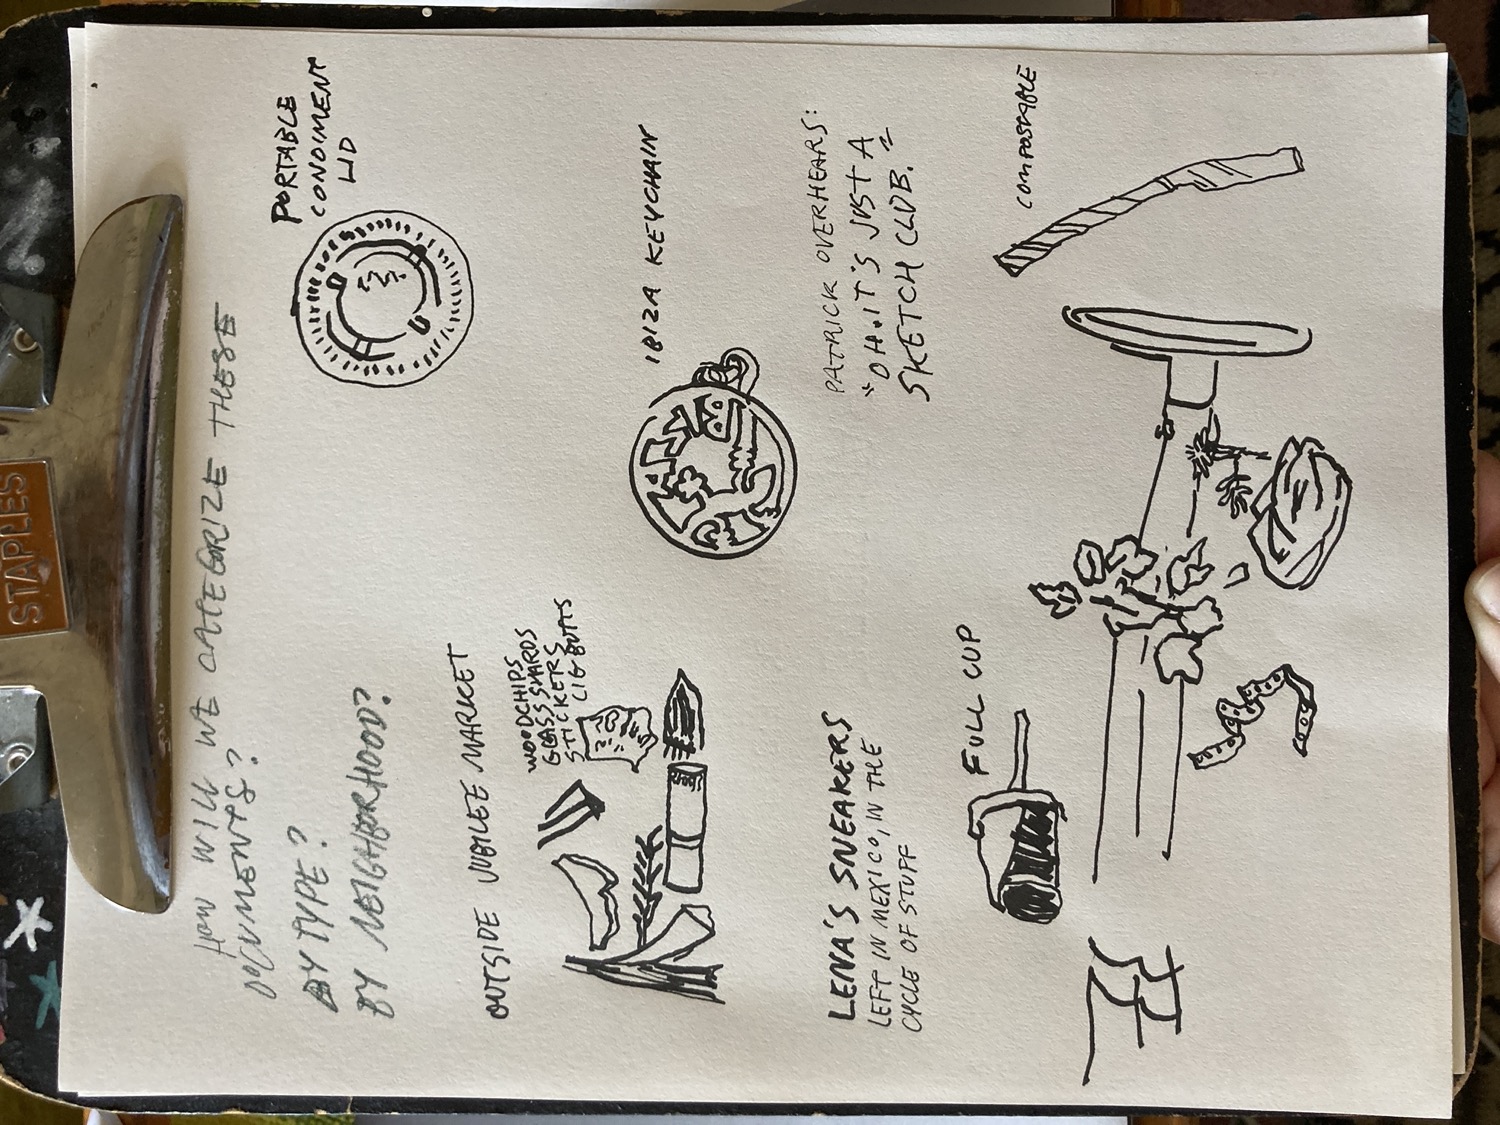 STAPLES
HOW WILL WE CATEGORIZE THESE
DOCUMENTS?
BY TYPE?
BY NEIGHBORHOOD?
PORTABLE
CONDIMENT
LID
OUTSIDE JUBILEE MARKET
WOODCHIPS
GLASS SHARDS
STICKERS
CIG BUTTS
IBIZA KEYCHAIN
LENA'S SNEAKERS
LEFT IN MEXICO, IN THE
CYCLE OF STUFF
PATRICK OVERHEARS:
"OH, IT'S JUST A
SKETCH CLUB."
FULL CUP
COMPOSTABLE